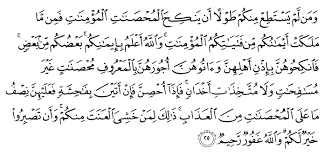 وَمَن لَّمْ يَسْتَطِعْ مِنكُمْ طَوْلًا أَن يَنكِحَ الْمُحْصَنَٰتِ الْمُؤْمِنَٰتِ فَمِن مَّا
مَلَكَتْ أَيْمَٰنُكُم مِّن فَتَيَٰتِكُمُ الْمُؤْمِنَٰتِ ۚ وَاللَّهُ أَعْلَمُ بِإِيمَٰنِكُم ۚ بَعْضُكُم مِّن بَعْضٍ ۚ
فَانكِحُوهُنَّ بِإِذْنِ أَهْلِهِنَّ وَءَاتُوهُنَّ أُجُورَهُنَّ بِالْمَعْرُوفِ مُحْصَنَٰتٍ غَيْرَ
مُسَٰفِحَٰتٍ وَلَا مُتَّخِذَٰتِ أَخْدَانٍ ۚ فَإِذَا أُحْصِنَّ فَإِنْ أَتَيْنَ بِفَٰحِشَةٍ فَعَلَيْهِنَّ نِصْفُ
مَا عَلَى الْمُحْصَنَٰتِ مِنَ الْعَذَابِ ۚ ذَٰلِكَ لِمَنْ خَشِيَ الْعَنَتَ مِنكُمْ ۚ وَأَن تَصْبِرُوا
خَيْرٌ لَّكُمْ ۗ وَاللَّهُ غَفُورٌ رَّحِيمٌ ٢٥